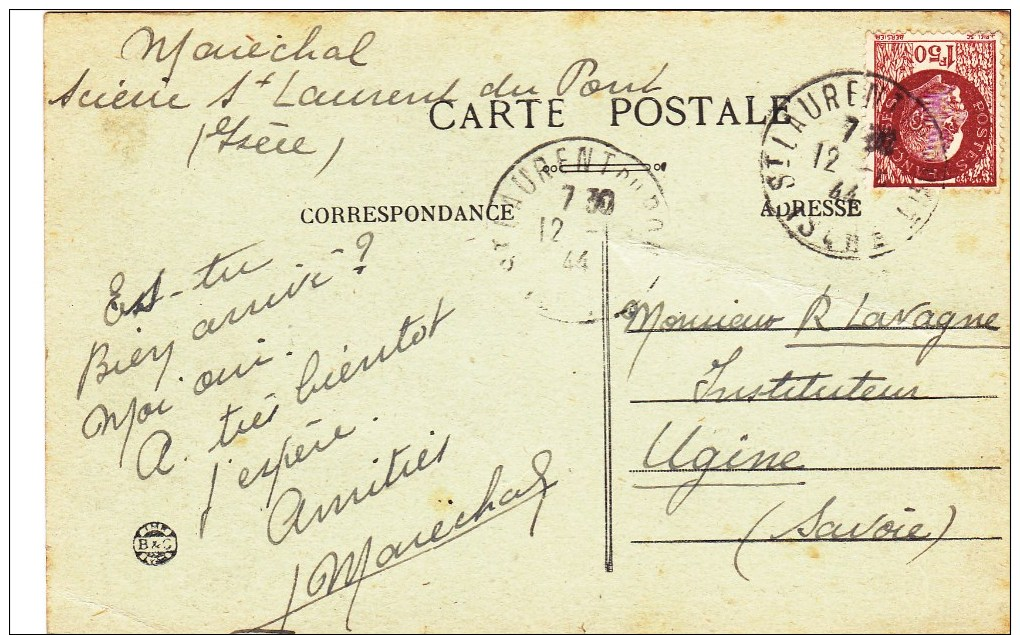 Maréchal
Scierie St Laurent du Pont
(Isère)
CARTE POSTALE
CORRESPONDANCE
ADRESSE
Est-tu
Bien arrivé ?
Moi oui.
A très bientôt
j'espère.
Amitiés
Maréchal
Monsieur R Lavagne
Instituteur
Ugine
(Savoie)
ST LAURENT DU PO
7 30
12 -
44
ST LAURENT
7 30
12 -
44
ISÈRE
1F50
POSTES FRANÇAISES
BERSIER
IMP
B&G